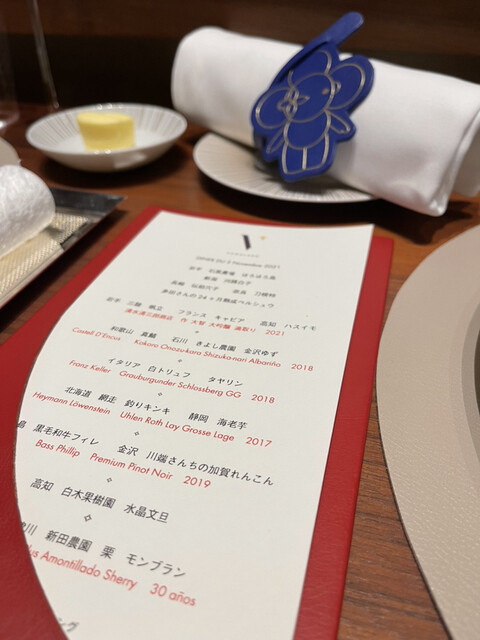 DINER DU 5 Novembre 2021
岩手 石黒農場 ほろほろ鳥
長崎 福岡 百合子
多田さんの24ヶ月熟成ペルシュウ
岩手 三陸 帆立 フランス キャビア 高知 ハスイモ
清水清三郎商店 作 大智 大吟醸 滴取り 2021
和歌山 真鯛 石川 きよし農園 金沢ゆず
Castell D'Encus Kokoro Onozukara Shizukanari Albariño 2018
イタリア 白トリュフ タヤリン
Franz Keller Grauburgunder Schlossberg GG 2018
北海道 網走 釣りキンキ 静岡 海老芋
Heymann Löwenstein Uhlen Roth Lay Grosse Lage 2017
島 黒毛和牛フィレ 金沢 川端さんちの加賀れんこん
Bass Phillip Premium Pinot Noir 2019
高知 白木果樹園 水晶文旦
川 新田農園 栗 モンブラン
us Amontillado Sherry 30 años
ング